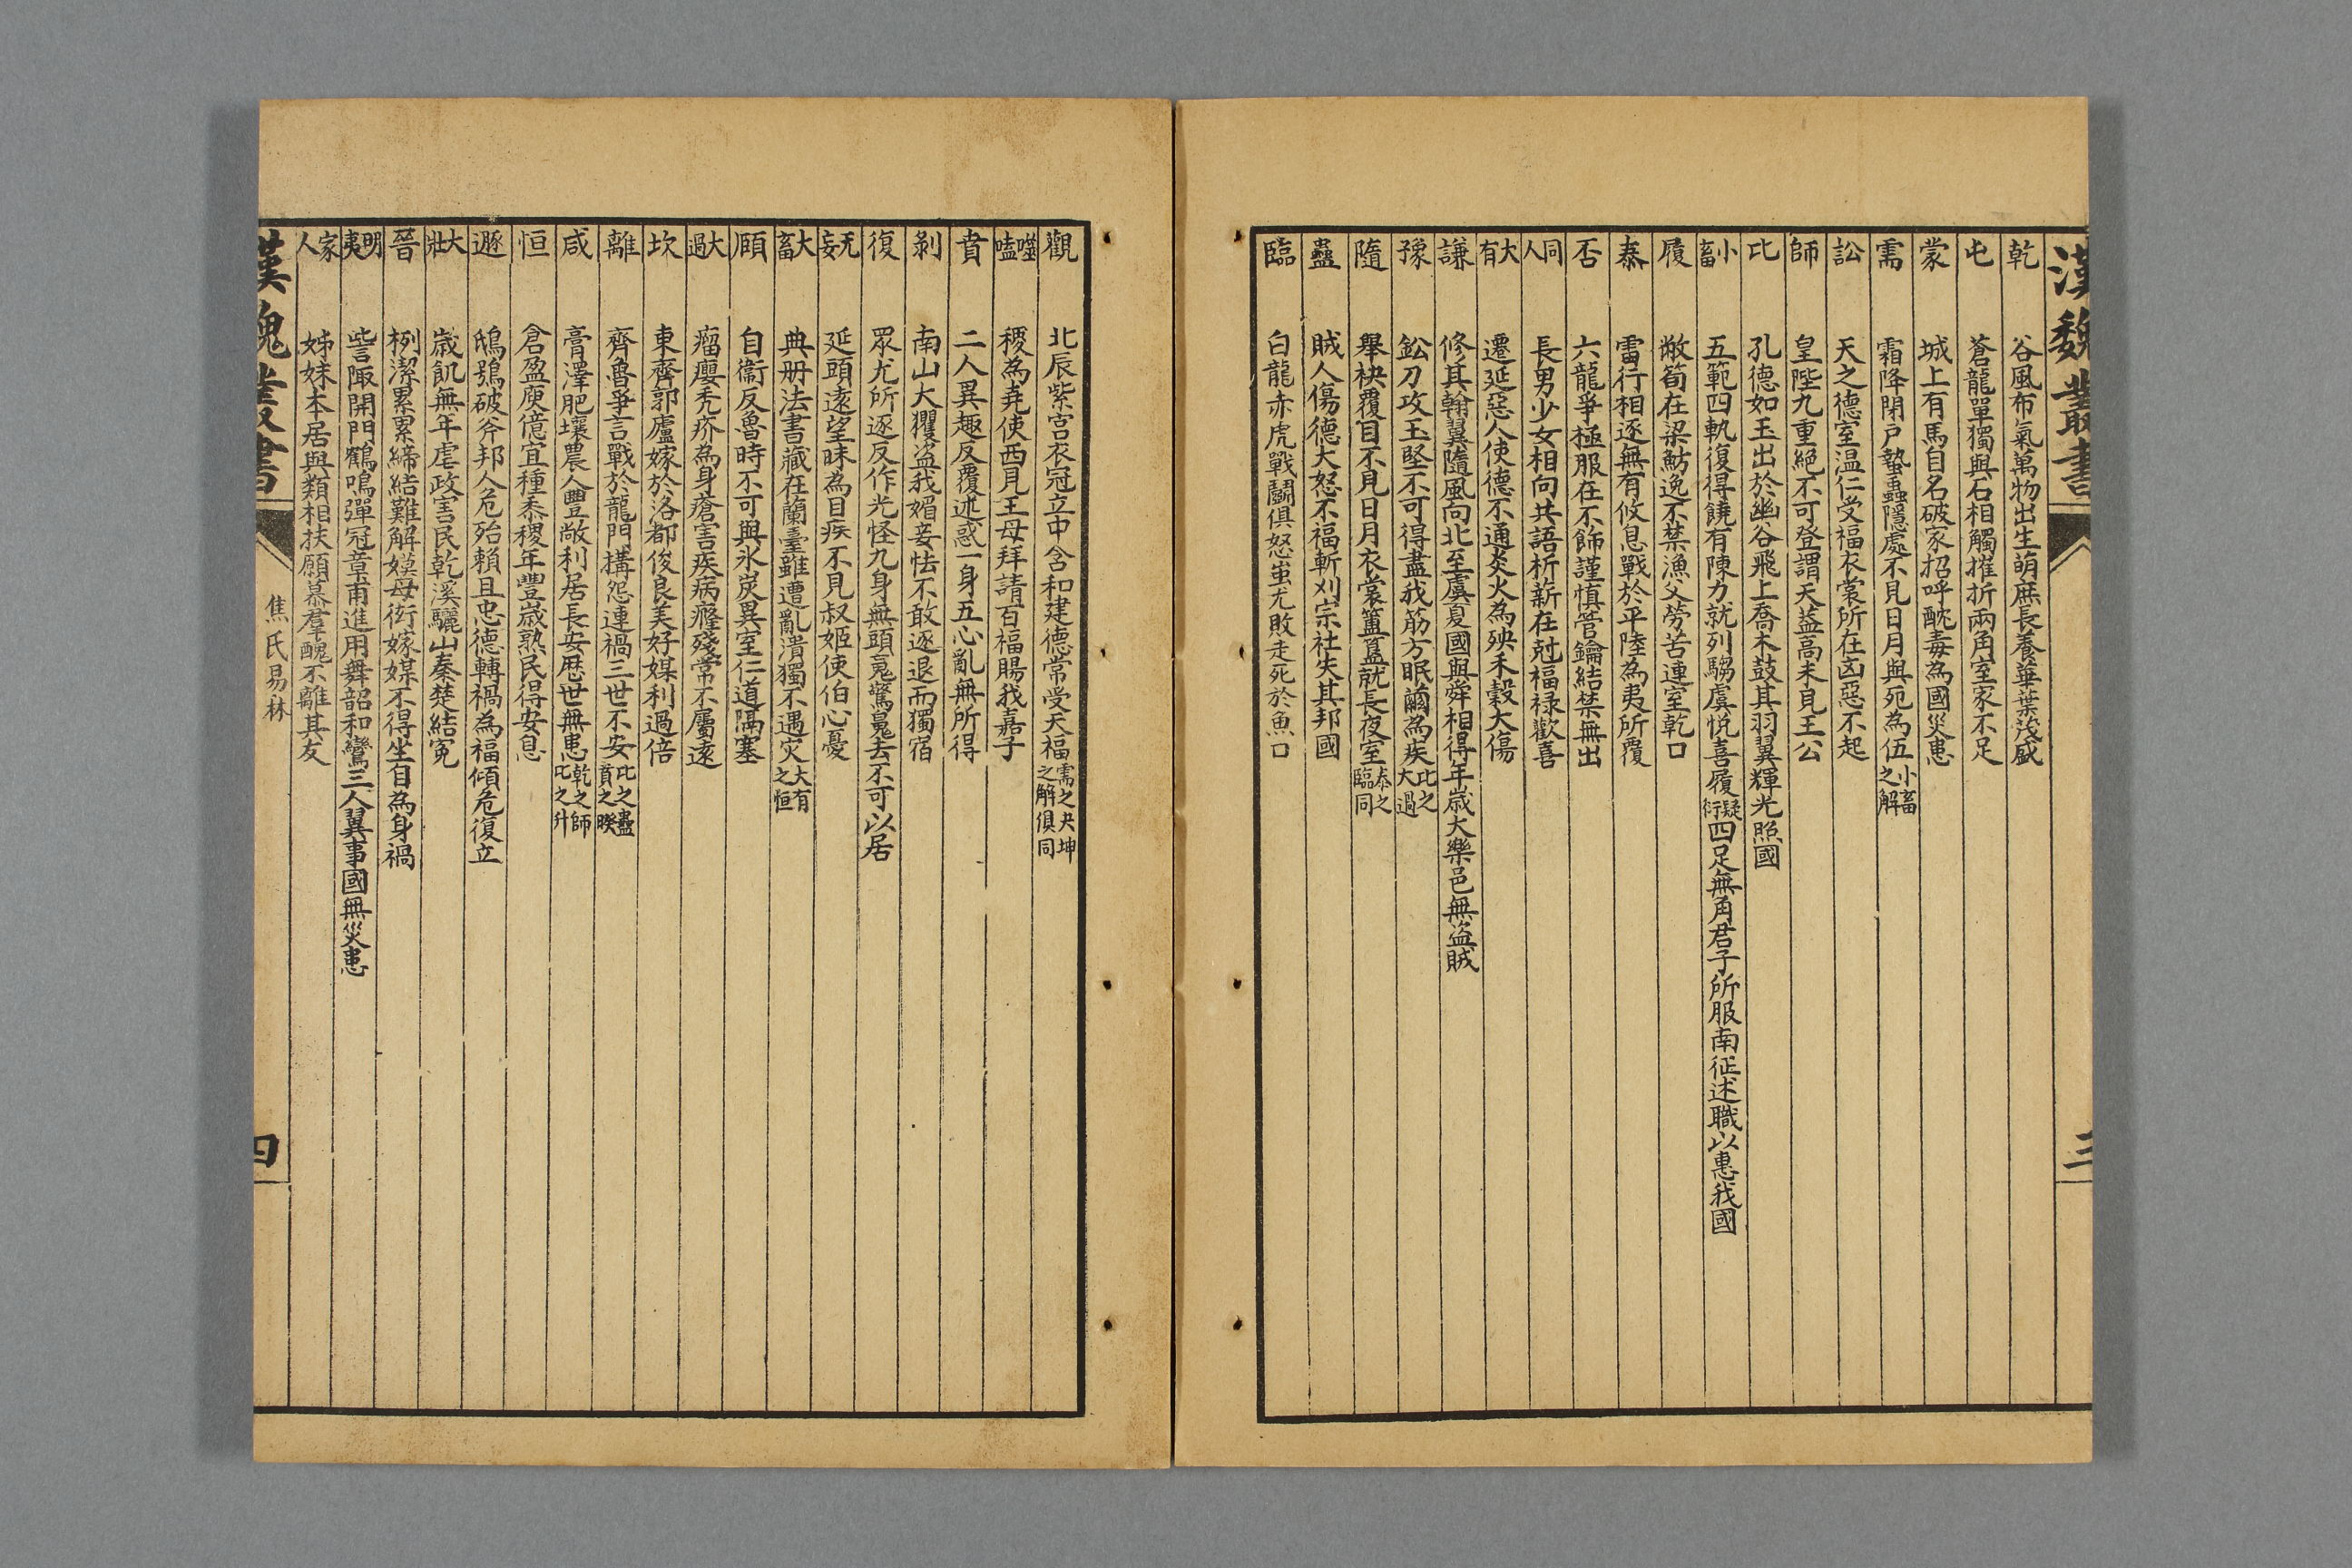 漢魏叢書
三
乾 谷風布氣萬物出生萌庶長養華葉茂盛
屯 蒼龍單獨與石相觸摧折兩角室家不足
蒙 城上有馬自名破家招呼酖毒為國災患
需 霜降閉戶蟄蟲隱處不見日月與死為伍小畜之解
訟 天之德室溫仁受福衣裳所在凶惡不起
師 皇陛九重絕不可登謂天葢高未見王公
比 孔德如玉出於幽谷飛上喬木鼓其羽翼輝光照國
小畜 五範四軌復得饒有陳力就列騶虞悅喜
履 敝笱在梁魴逸不禁漁父勞苦連室乾口
履疑衍四足無角君子所服南征述職以惠我國
泰 雷行相逐無有攸息戰於平陸為夷所覆
否 六龍爭極服在不飾謹慎管鑰結禁無出
同人 長男少女相向共語析薪在尅福祿歡喜
大有 遷延惡人使德不通炎火為殃禾穀大傷
謙 修其翰翼隨風向北至虞夏國與舜相得年歲大樂邑無盜賊
豫 鈆刀攻玉堅不可得盡我筋力眠繭為疾比之大過
隨 舉袂覆目不見日月衣裳簠簋就長夜室泰之臨同
蠱 賊人傷德大怒不福斬刈宗社失其邦國
臨 白龍赤虎戰鬭俱怒蚩尤敗走死於魚口
觀 北辰紫宮衣冠立中含和建德常受天福需之夬坤之解俱同
噬嗑 稷為堯使西見王母拜請百福賜我嘉子
賁 二人異趣反覆迷惑一身五心亂無所得
剝 南山大玃盜我媚妾怯不敢逐退而獨宿
復 眾尤所逐反作光怪九身無頭䰟驚䰟去不可以居
无妄 延頭遠望眯為目疾不見叔姬使伯心憂
大畜 典册法書藏在蘭臺雖遭亂潰獨不遇灾大有之恒
頤 自衞反魯時不可與氷炭異室仁道隔塞
大過 瘤癭禿疥為身瘡害疾病癃殘常不屬逮
坎 東齊郭廬嫁於洛都俊良美好媒利過倍
離 齊魯爭言戰於龍門搆怨連禍三世不安比之蠱賁之暌
咸 膏澤肥壤農人豐敞利居長安歷世無患乾之師比之升
恒 倉盈庾億宜種黍稷年豐歲熟民得安息
遯 鴟鴞破斧邦人危殆賴旦忠德轉禍為福傾危復立
大壯 歲飢無年虐政害民乾溪驪山秦楚結寃
晉 㭁潔累累締結難解嫫母衒嫁媒不得坐自為身禍
明夷 訾陬開門鶴鳴彈冠章甫進用舞韶和鸞三人翼事國無災患
家人 姊妹本居與類相扶願慕羣醜不離其友
漢魏叢書
焦氏易林
四